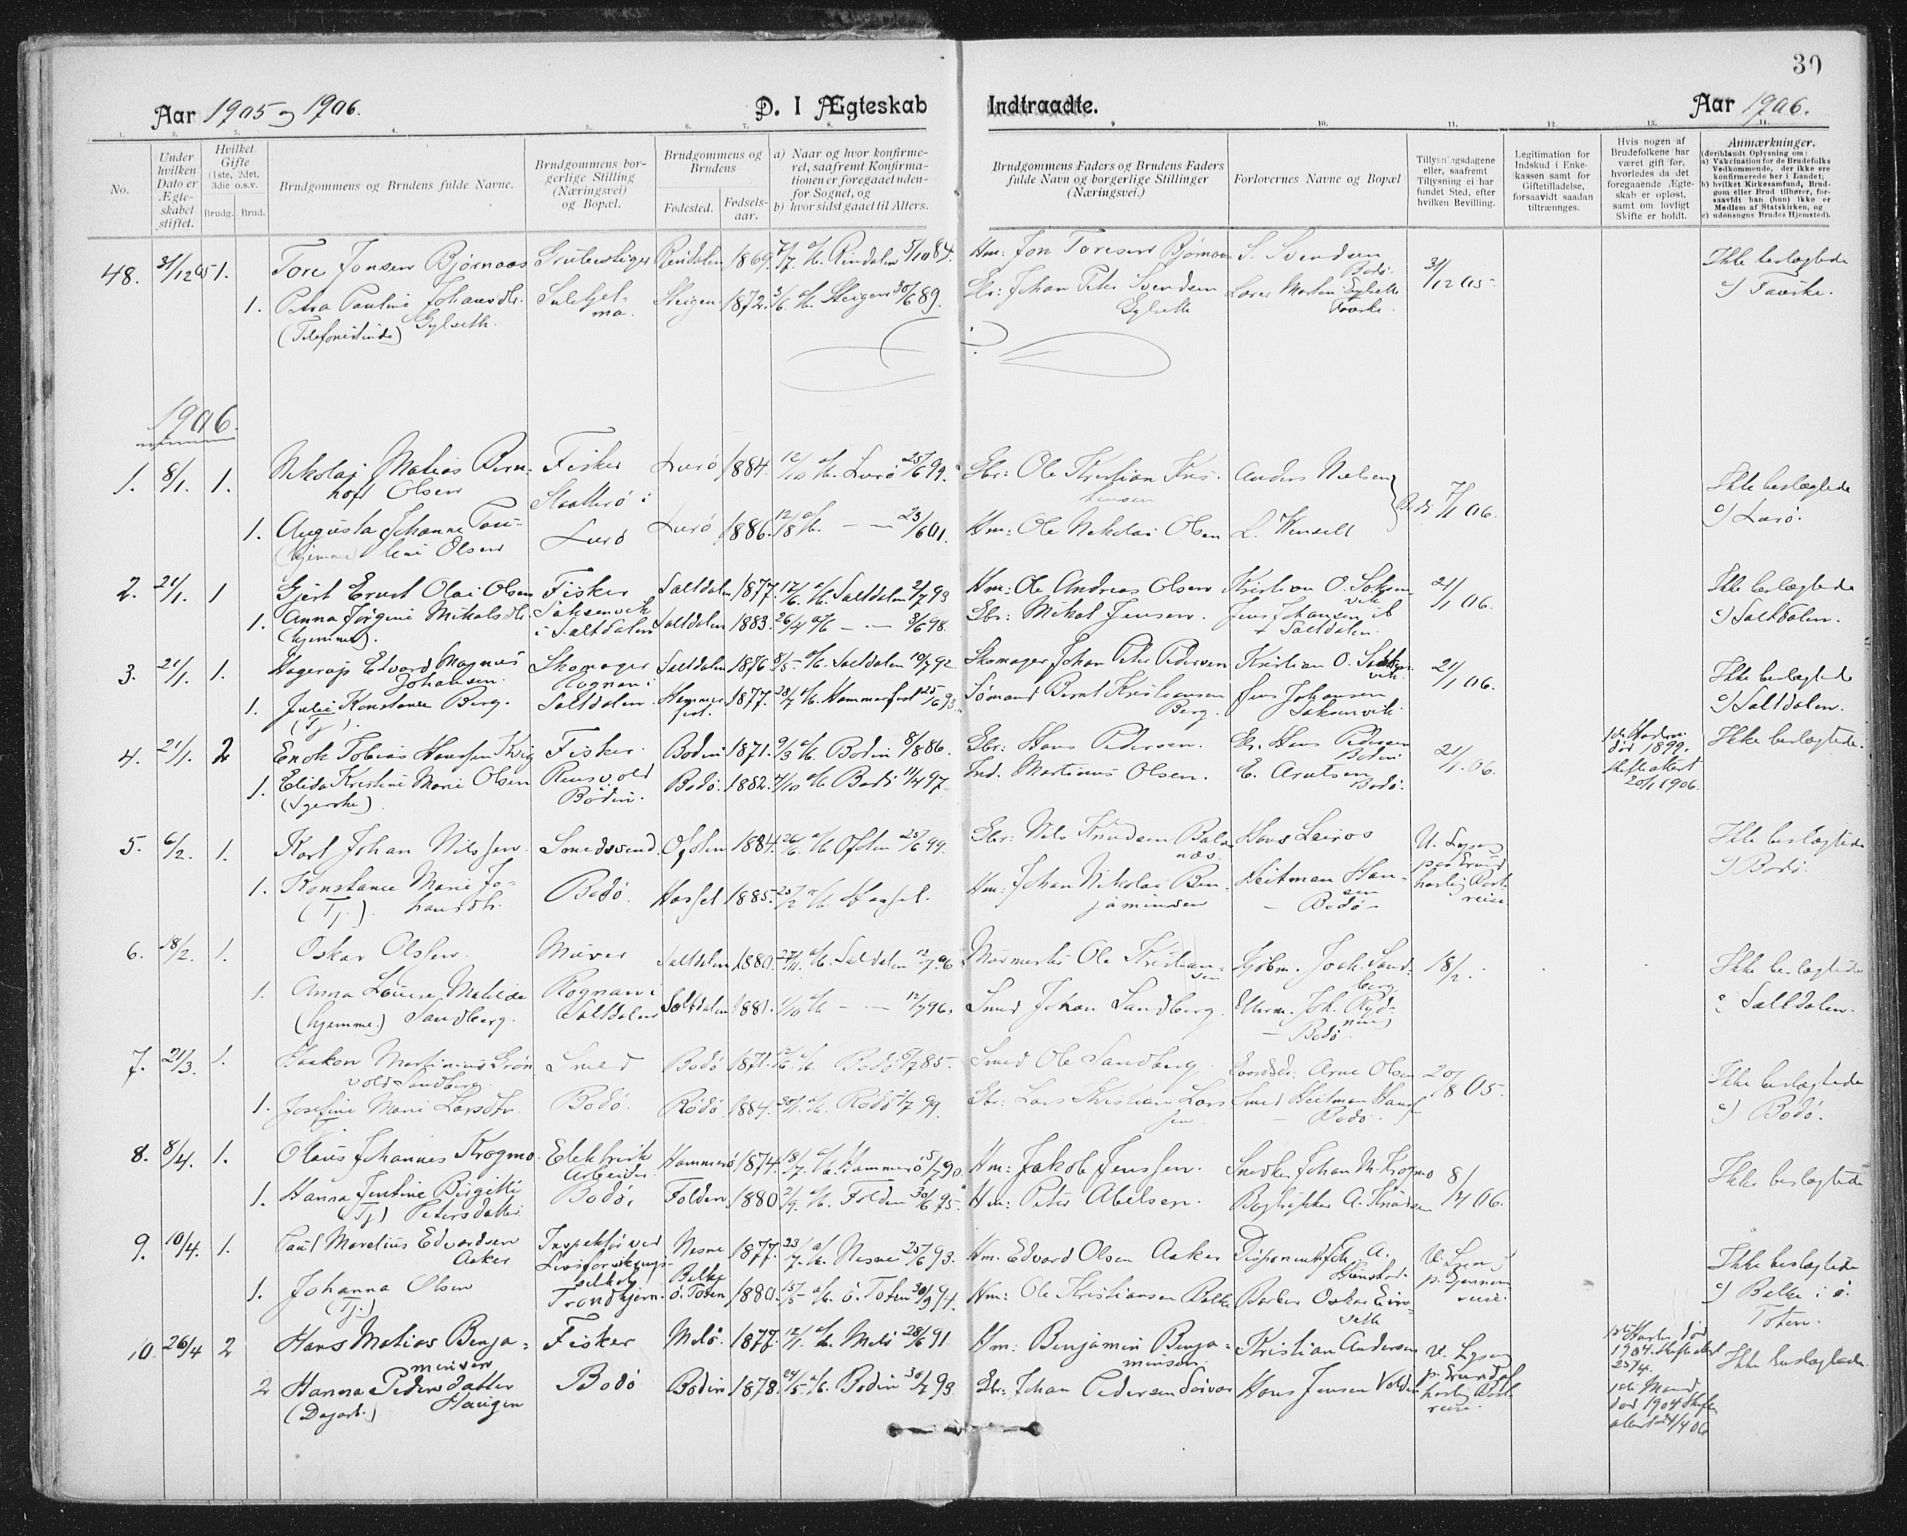 30
Aar 1905 og 1906.
D. I Ægteskab Indtraadte.
Aar 1906.
1. 2. 3. 4. 5. 6. 7. 8. 9 10. 11. 12. 13. 14.
No.
Under hvilken Dato er Ægteskabet stiftet.
Hvilket Gifte (1ste, 2det, 3die o.s.v.
Brudg. Brud.
Brudgommens og Brudens fulde Navne.
Brudgommens borgerlige Stilling (Næringsvei) og Bopæl.
Brudgommens og Brudens
Fødested. Fødselsaar.
a) Naar og hvor konfirmeret, saafremt Konfirmationen er foregaaet udenfor Sognet, og
b) hvor sidst gaaet til Alters.
Brudgommens Faders og Brudens Faders fulde Navn og borgerlige Stillinger (Næringsvei.)
Forlovernes Navne og Bopæl
Tillysningsdagene eller, saafremt Tillysning ei har fundet Sted, efter hvilken Bevilling.
Legitimation for Indskud i Enkekassen samt for Giftetilladelse, forsaavidt saadan tiltrænges.
Hvis nogen af Brudefolkene har været gift for, hvorledes da det foregaaende Ægteskab er opløst, samt om lovligt Skifte er holdt.
Anmærkninger.
(deriblandt Oplysning om:
a) Vakcination for de Brudefolks Vedkommende, der ikke ere konfirmerede her i Landet;
b) hvilket Kirkesamfund, Brudgom eller Brud tilhører, forsaavidt han (hun) ikke er Medlem af Statskirken, og
c) udensogns Brudes Hjemsted).
48. 31/12 05 1. Tore Jonsen Bjørnaas Grubestiger Rindalen 1869. Rindalen 5/10 84. Hm: Jon Toresen Bjørnaas S. Svendsen Bodø. 31/12 05. Ikke beslægtede
1. Petra Pauline Johansdtr. Gylseth Sulitjelma Steigen 1872. Steigen 30/6 89. Gbr: Johan Peter Svendsen Gylseth Lorns Martin Gylseth Fauske. c) Fauske.
(Telefonistinde)
1906.
1. 8/1. 1. Nikolaj Matias Bernhoft Olsen Fisker Lurø 1884. 12/10 Lurø 25/6 99. Gbr: Ole Kristian Kristensen Anders Nielsen Bodø 7/1 06. Ikke beslægtede
1. Augusta Johanne Pauline Olsen Lurø Lurø 1886. — — 23/6 01. Hm: Ole Nikolai Olsen L. Wenselt c) Lurø.
(hjemme)
2. 21/1. 1 Gjert Ernst Olai Olsen Fisker Saltdalen 1877. 12/6 Saltdalen 2/7 93 Hm: Ole Andreas Olsen Kristian O. Saksenvik 21/1 06. Ikke beslægtede
1. Anna Jørgine Mikalsdtr. Saksenvik i Saltdalen Saltdalen 1883. 26/4 — — 3/6 98. Gbr: Mikal Jensen. Jens Johansen Saltdalen. c) Saltdalen.
(hjemme).
3. 21/1. 1. Hagerup Edvard Magnus Johansen. Skomager Saltdalen 1876 8/5 Saltdalen 10/7 92. Skomager Johan Peter Pedersen Kristian O. Saksenvik. 21/1 06. Ikke beslægtede
1. Julie Konstance Berg. Rognan i Saltdalen. Hammerfest. 1877. 28/7 Hammerfest 25/6 93. Sømand Bernt Kristiansen Berg. Jens Johansen Saksenvik. c) Saltdalen.
(Tj).
4. 21/1. 2 Enok Tobias Hanssen Kvig Fisker. Bodin 1871. 9/3 Bodin 8/8 86. Gbr: Hans Pedersen. Hans Pedersen Bodin 21/1 06. 1ste Hustru død 1899. Skifteattest 20/1 1906. Ikke beslægtede.
1. Elida Kristine Marie Olsen Bodin. Bodø. 1882. 4/10 Bodø 11/4 97. Ind. Martinus Olsen. E. Arntsen Bodø.
(Syerske)
5. 6/2. 1. Karl Johan Nilssen. Smedsvend. Ofoten 1884. 26/6 Ofoten 25/6 99. Gbr: Nils Knudsen Balsnæs. Hans Leiros U. Lysn. paa Grund hastig Bortreise. Ikke beslægtede
1. Konstance Marie Johansdtr. Bodø. Hassel 1885. Hassel. Hm: Johan Nikolai Benjaminsen Heitman Hansen — Bodø — c) Bodø.
(Tj.)
6. 18/2. 1. Oskar Olsen. Murer Saltdalen 1880. Saltdalen 12/7 96 Murmester Ole Kristiansen Kjøbm. Joch. Sandberg. 18/2. Ikke beslægtede
1. Anna Louise Matilde Sandberg. Rognan i Saltdalen Saltdalen 1881. 1/10 — — 12/7 96. Smed Johan Sandberg. Joh. Rydning — Bodø. c Saltdalen.
(hjemme.)
7. 21/3. 1. Haakon Martinius Grønvold Sandberg. Smed Bodø 1871. Bodø 5/7 85. Smed Ole Sandberg. Arne Olsen 20/8 05. Ikke beslægtede
1. Josefine Marie Larsdtr. Bodø. Rødø 1884. Rødø 2/7 99. Gbr: Lars Kristian Larssen. Smed Heitman Hansen — Bodø. c) Bodø.
8. 8/4. 1. Olaus Johannes Krogmo. Elektrisk Arbeider Hammerø 1874. 18/7 Hammerø 5/7 90. Hm: Jakob Jenssen. Snedker Johan M. Krogmo 8/4 06. Ikke beslægtede
1. Hanna Jentine Birgitte Petersdatter. Bodø, Folden 1880 2/9 Folden 30/6 95. Hm: Peter Abelsen. Bogtrykker A. Knudsen
(Tj)
9. 10/4. 1. Paul Marelius Edvardsen Aaker Inspektør ved Livsforsikringsselskab Nesne 1877. 23/7 Nesne 25/6 93. Hm. Edvard Olsen Aaker Disponent U. Lysn. p. Gjennemreise. Ikke beslægtede
1. Johanna Olsen Trondhjem. Balke ø. Toten 1880. 15/5 ø. Toten 30/9 94. Hm: Ole Kristiansen Balke Barber Oskar c) Balke i ø. Toten.
(Tj.)
10. 26/4 2 Hans Matias Benjaminsen Fisker Melø. 1877. 12/1 Melø 28/6 91. Hm: Benjamin Benjaminsen. Kristian Andersen U. Lysn. p. Grund af hastig Bortreise. 1ste Hustru død 1904. Skifteattest 25/4. Ikke beslægtede
2 Hanna Pedersdatter Haugen Bodø Bodin 1878. 24/5 Bodin 30/7 93. Gbr: Johan Pedersen Soivaa Hans Jensen Volden 1ste Mand død 1904 Skifteattest 24/4 06
(Dagarb.)